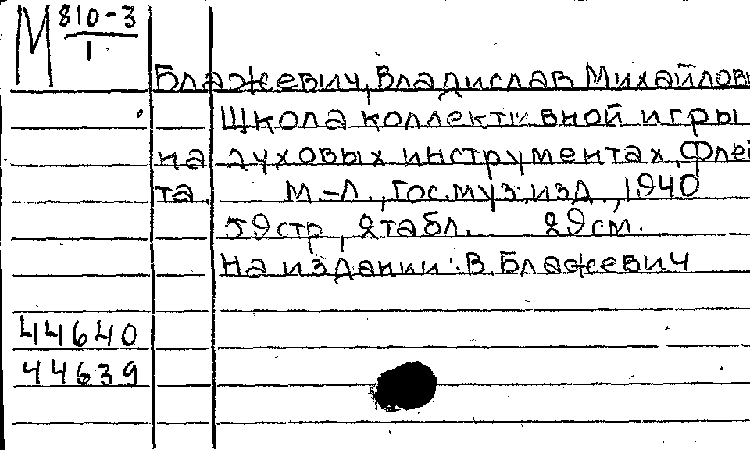 М 810-3
1
Блажевич, Владислав Михайлови
Школа коллективной игры
на духовых инструментах. Флей
та. М.-Л., Гос. муз. изд., 1940
59 стр, 2 табл. 29 см.
На издании: В. Блажевич
44640
44639